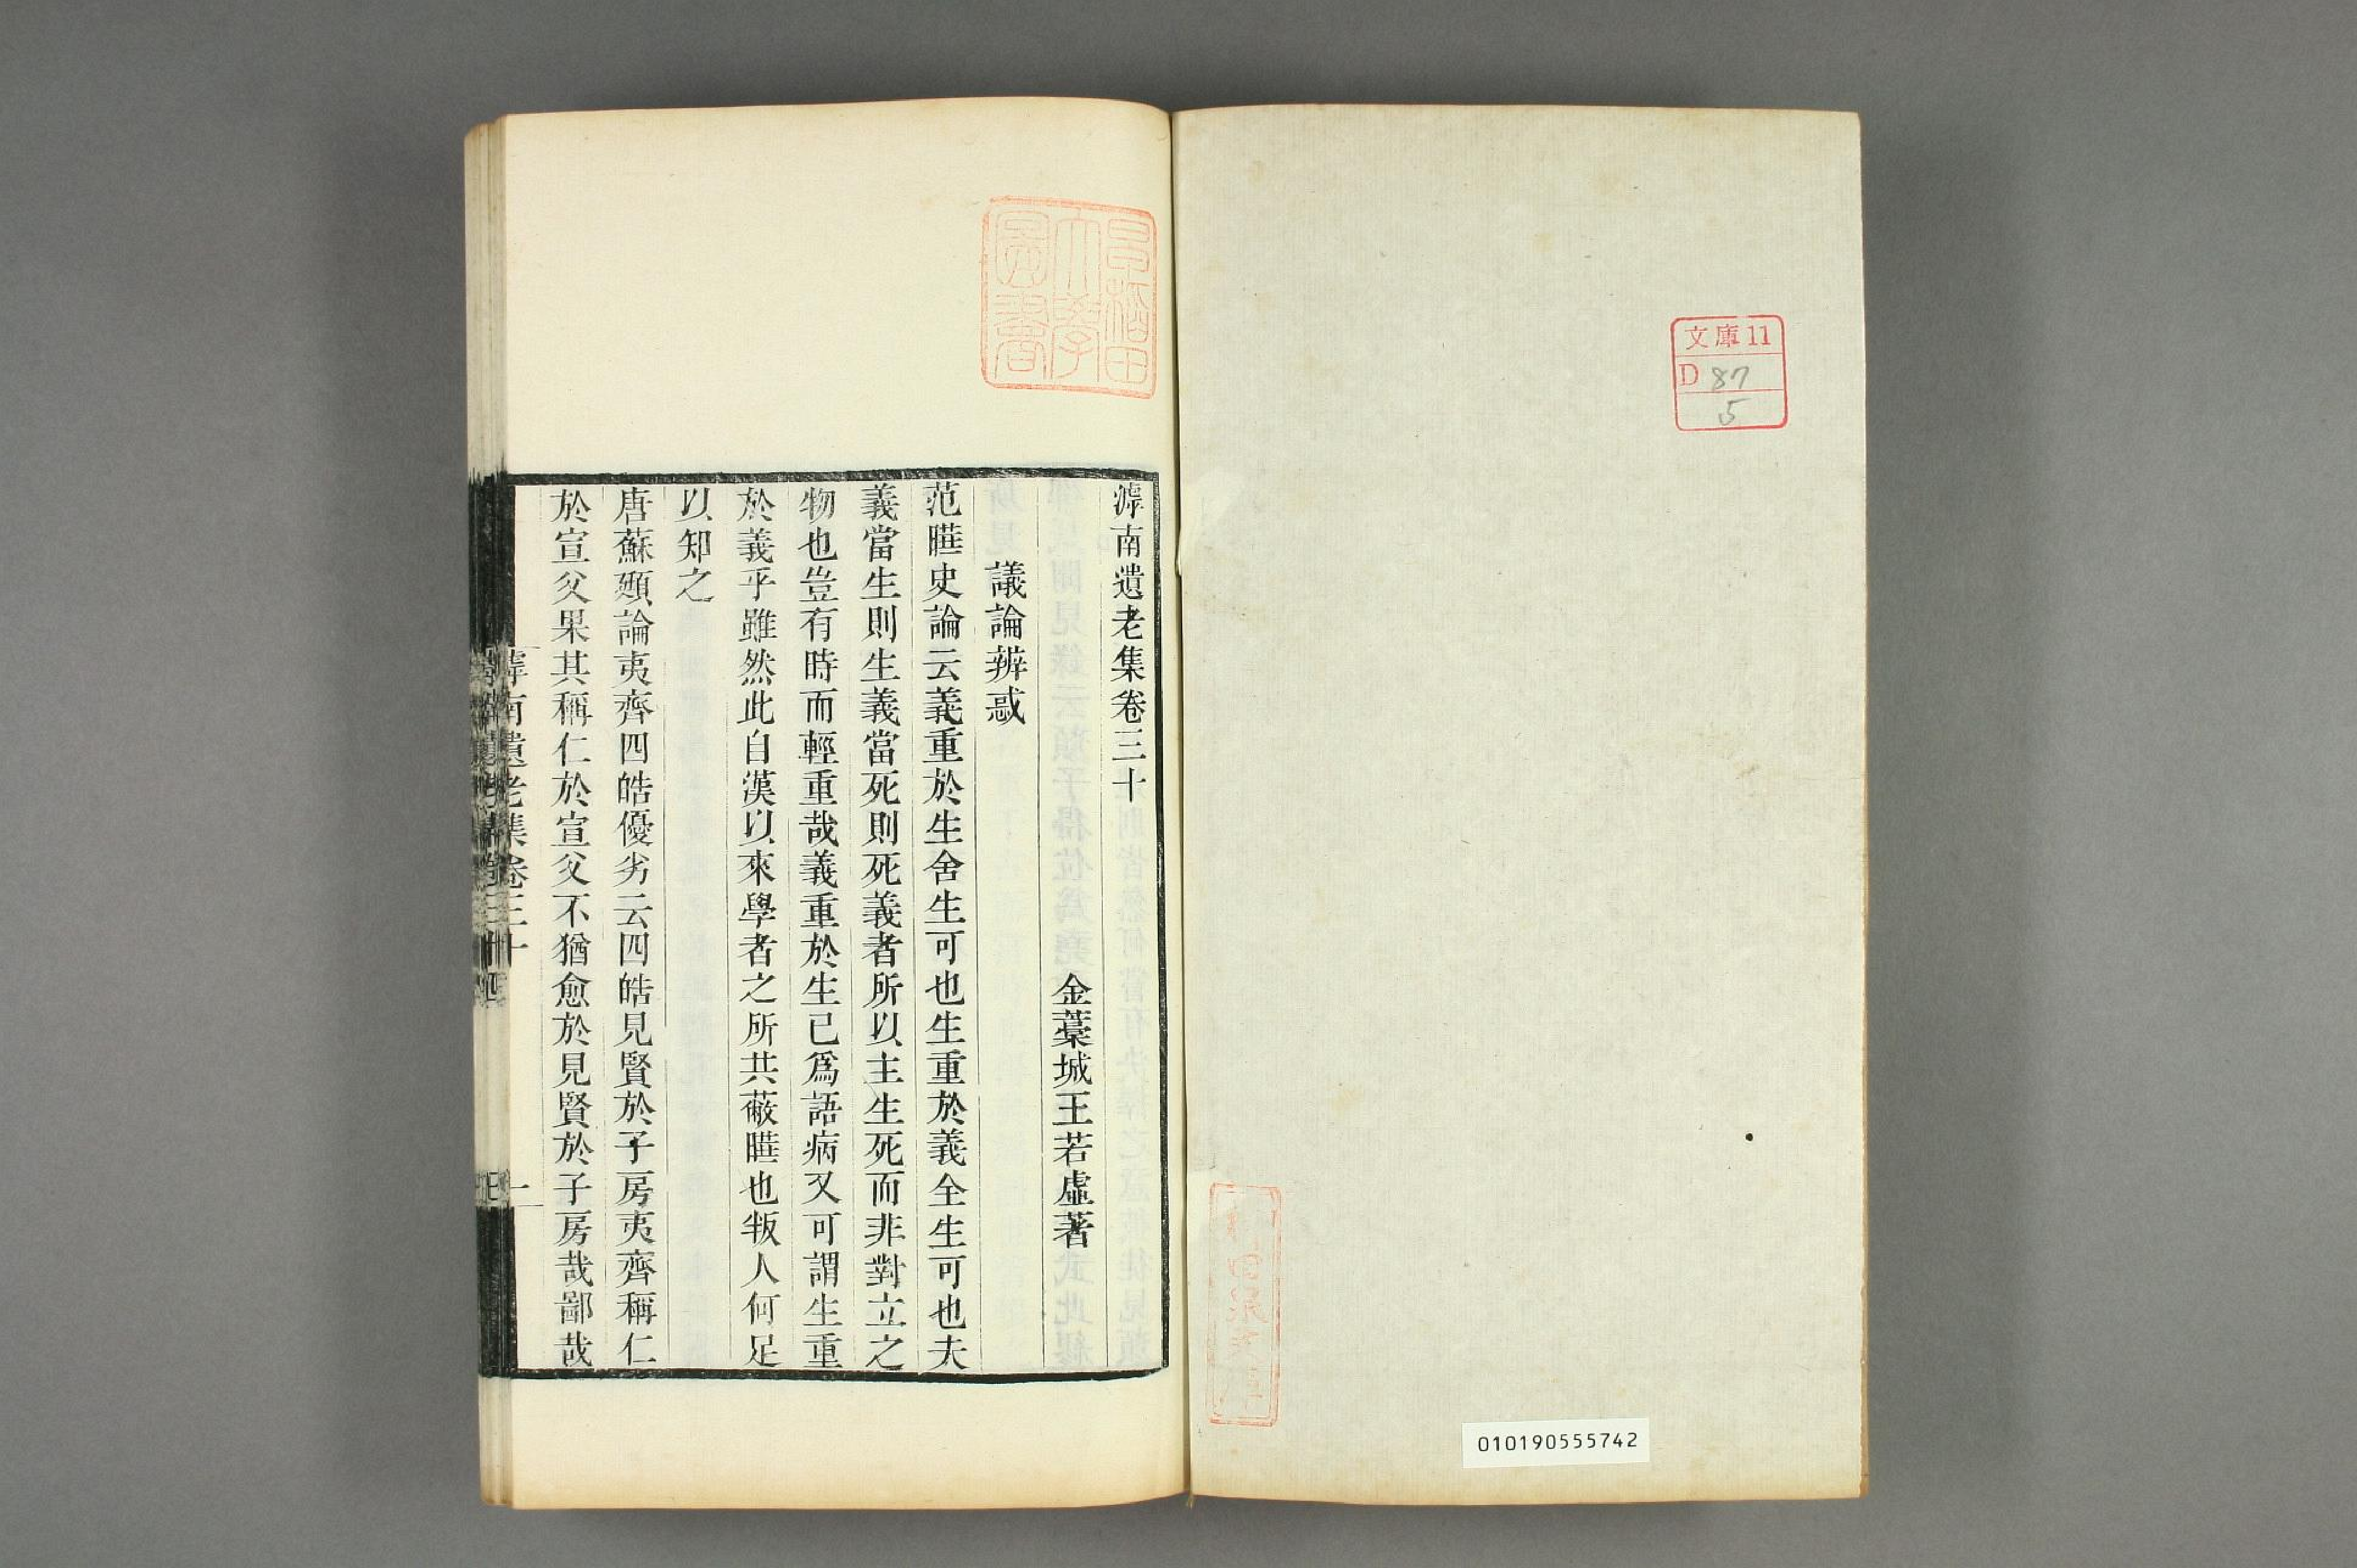 文庫11
D 87
5
010190555742
早稲田
大學
圖書
滹南遺老集卷三十
金藁城王若虛著
議論辨惑
范曄史論云義重於生舍生可也生重於義全生可也夫
義當生則生義當死則死義者所以主生死而非對立之
物也豈有時而輕重哉義重於生已爲語病又可謂生重
於義乎雖然此自漢以來學者之所共蔽曄也叛人何足
以知之
唐蘇頲論夷齊四皓優劣云四皓見賢於子房夷齊稱仁
於宣父果其稱仁於宣父不猶愈於見賢於子房哉鄙哉
滹南遺老集卷三十
一